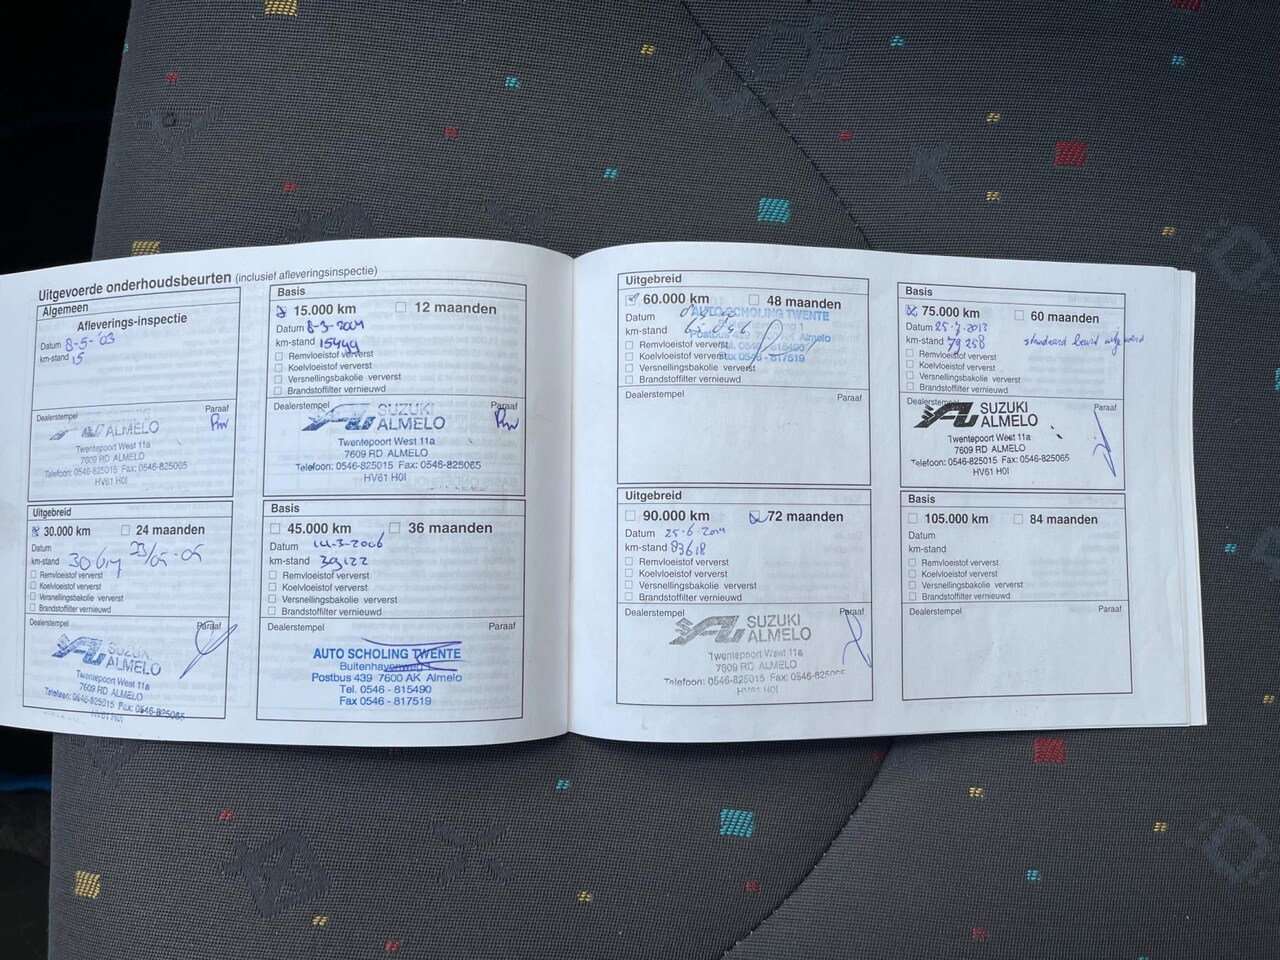 Uitgevoerde onderhoudsbeurten (inclusief afleveringsinspectie)
Algemeen
Afleverings-inspectie
Datum 8-5-'03
km-stand 15
Dealerstempel Paraaf
ALMELO
Twentepoort West 11a
7609 RD ALMELO
Telefoon: 0546-825015 Fax: 0546-825065
HV61 H0I
Basis
15.000 km 12 maanden
Datum 8-3-2004
km-stand 15444
Remvloeistof ververst
Koelvloeistof ververst
Versnellingsbakolie ververst
Brandstoffilter vernieuwd
Dealerstempel Paraaf
SUZUKI
ALMELO
Twentepoort West 11a
7609 RD ALMELO
Telefoon: 0546-825015 Fax: 0546-825065
HV61 H0I
Uitgebreid
30.000 km 24 maanden
Datum 23/05-05
km-stand
Remvloeistof ververst
Koelvloeistof ververst
Versnellingsbakolie ververst
Brandstoffilter vernieuwd
Dealerstempel Paraaf
SUZUKI
ALMELO
Twentepoort West 11a
7609 RD ALMELO
Telefoon: 0546-825015 Fax: 0546-825065
HV61 H0I
Basis
45.000 km 36 maanden
Datum 14-3-2006
km-stand 39122
Remvloeistof ververst
Koelvloeistof ververst
Versnellingsbakolie ververst
Brandstoffilter vernieuwd
Dealerstempel Paraaf
AUTO SCHOLING TWENTE
Buitenhavenweg 1
Postbus 439 7600 AK Almelo
Tel. 0546 - 815490
Fax 0546 - 817519
Uitgebreid
60.000 km 48 maanden
Datum
km-stand
AUTO SCHOLING TWENTE
Postbus 439 Almelo
Fax 0546 - 817519
Remvloeistof ververst
Koelvloeistof ververst
Versnellingsbakolie ververst
Brandstoffilter vernieuwd
Dealerstempel Paraaf
Basis
75.000 km 60 maanden
Datum 25-7-2013
km-stand 79258 standaard beurt
Remvloeistof ververst
Koelvloeistof ververst
Versnellingsbakolie ververst
Brandstoffilter vernieuwd
Dealerstempel Paraaf
SUZUKI
ALMELO
Twentepoort West 11a
7609 RD ALMELO
Telefoon: 0546-825015 Fax: 0546-825065
HV61 H0I
Uitgebreid
90.000 km 72 maanden
Datum 25-6-2014
km-stand 83618
Remvloeistof ververst
Koelvloeistof ververst
Versnellingsbakolie ververst
Brandstoffilter vernieuwd
Dealerstempel Paraaf
SUZUKI
ALMELO
Twentepoort West 11a
7609 RD ALMELO
Telefoon: 0546-825015 Fax: 0546-825065
HV61 H0I
Basis
105.000 km 84 maanden
Datum
km-stand
Remvloeistof ververst
Koelvloeistof ververst
Versnellingsbakolie ververst
Brandstoffilter vernieuwd
Dealerstempel Paraaf